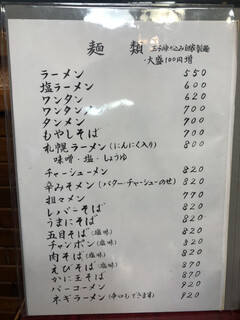 麺類 玉子練り込み自家製麺
・大盛100円増
ラーメン 550
塩ラーメン 600
ワンタン 620
ワンタンメン 700
タンメン 700
もやしそば 700
札幌ラーメン(にんにく入り) 800
味噌・塩・しょうゆ
チャーシューメン 820
辛みそメン(バター・チャーシューのせ) 820
担々メン 770
レバーそば 820
うまにそば 820
五目そば(塩味) 820
チャンポン(塩味) 820
肉そば(塩味) 820
えびそば(塩味) 870
かに玉そば 870
バーコーメン 920
ネギラーメン(辛口もできます) 920